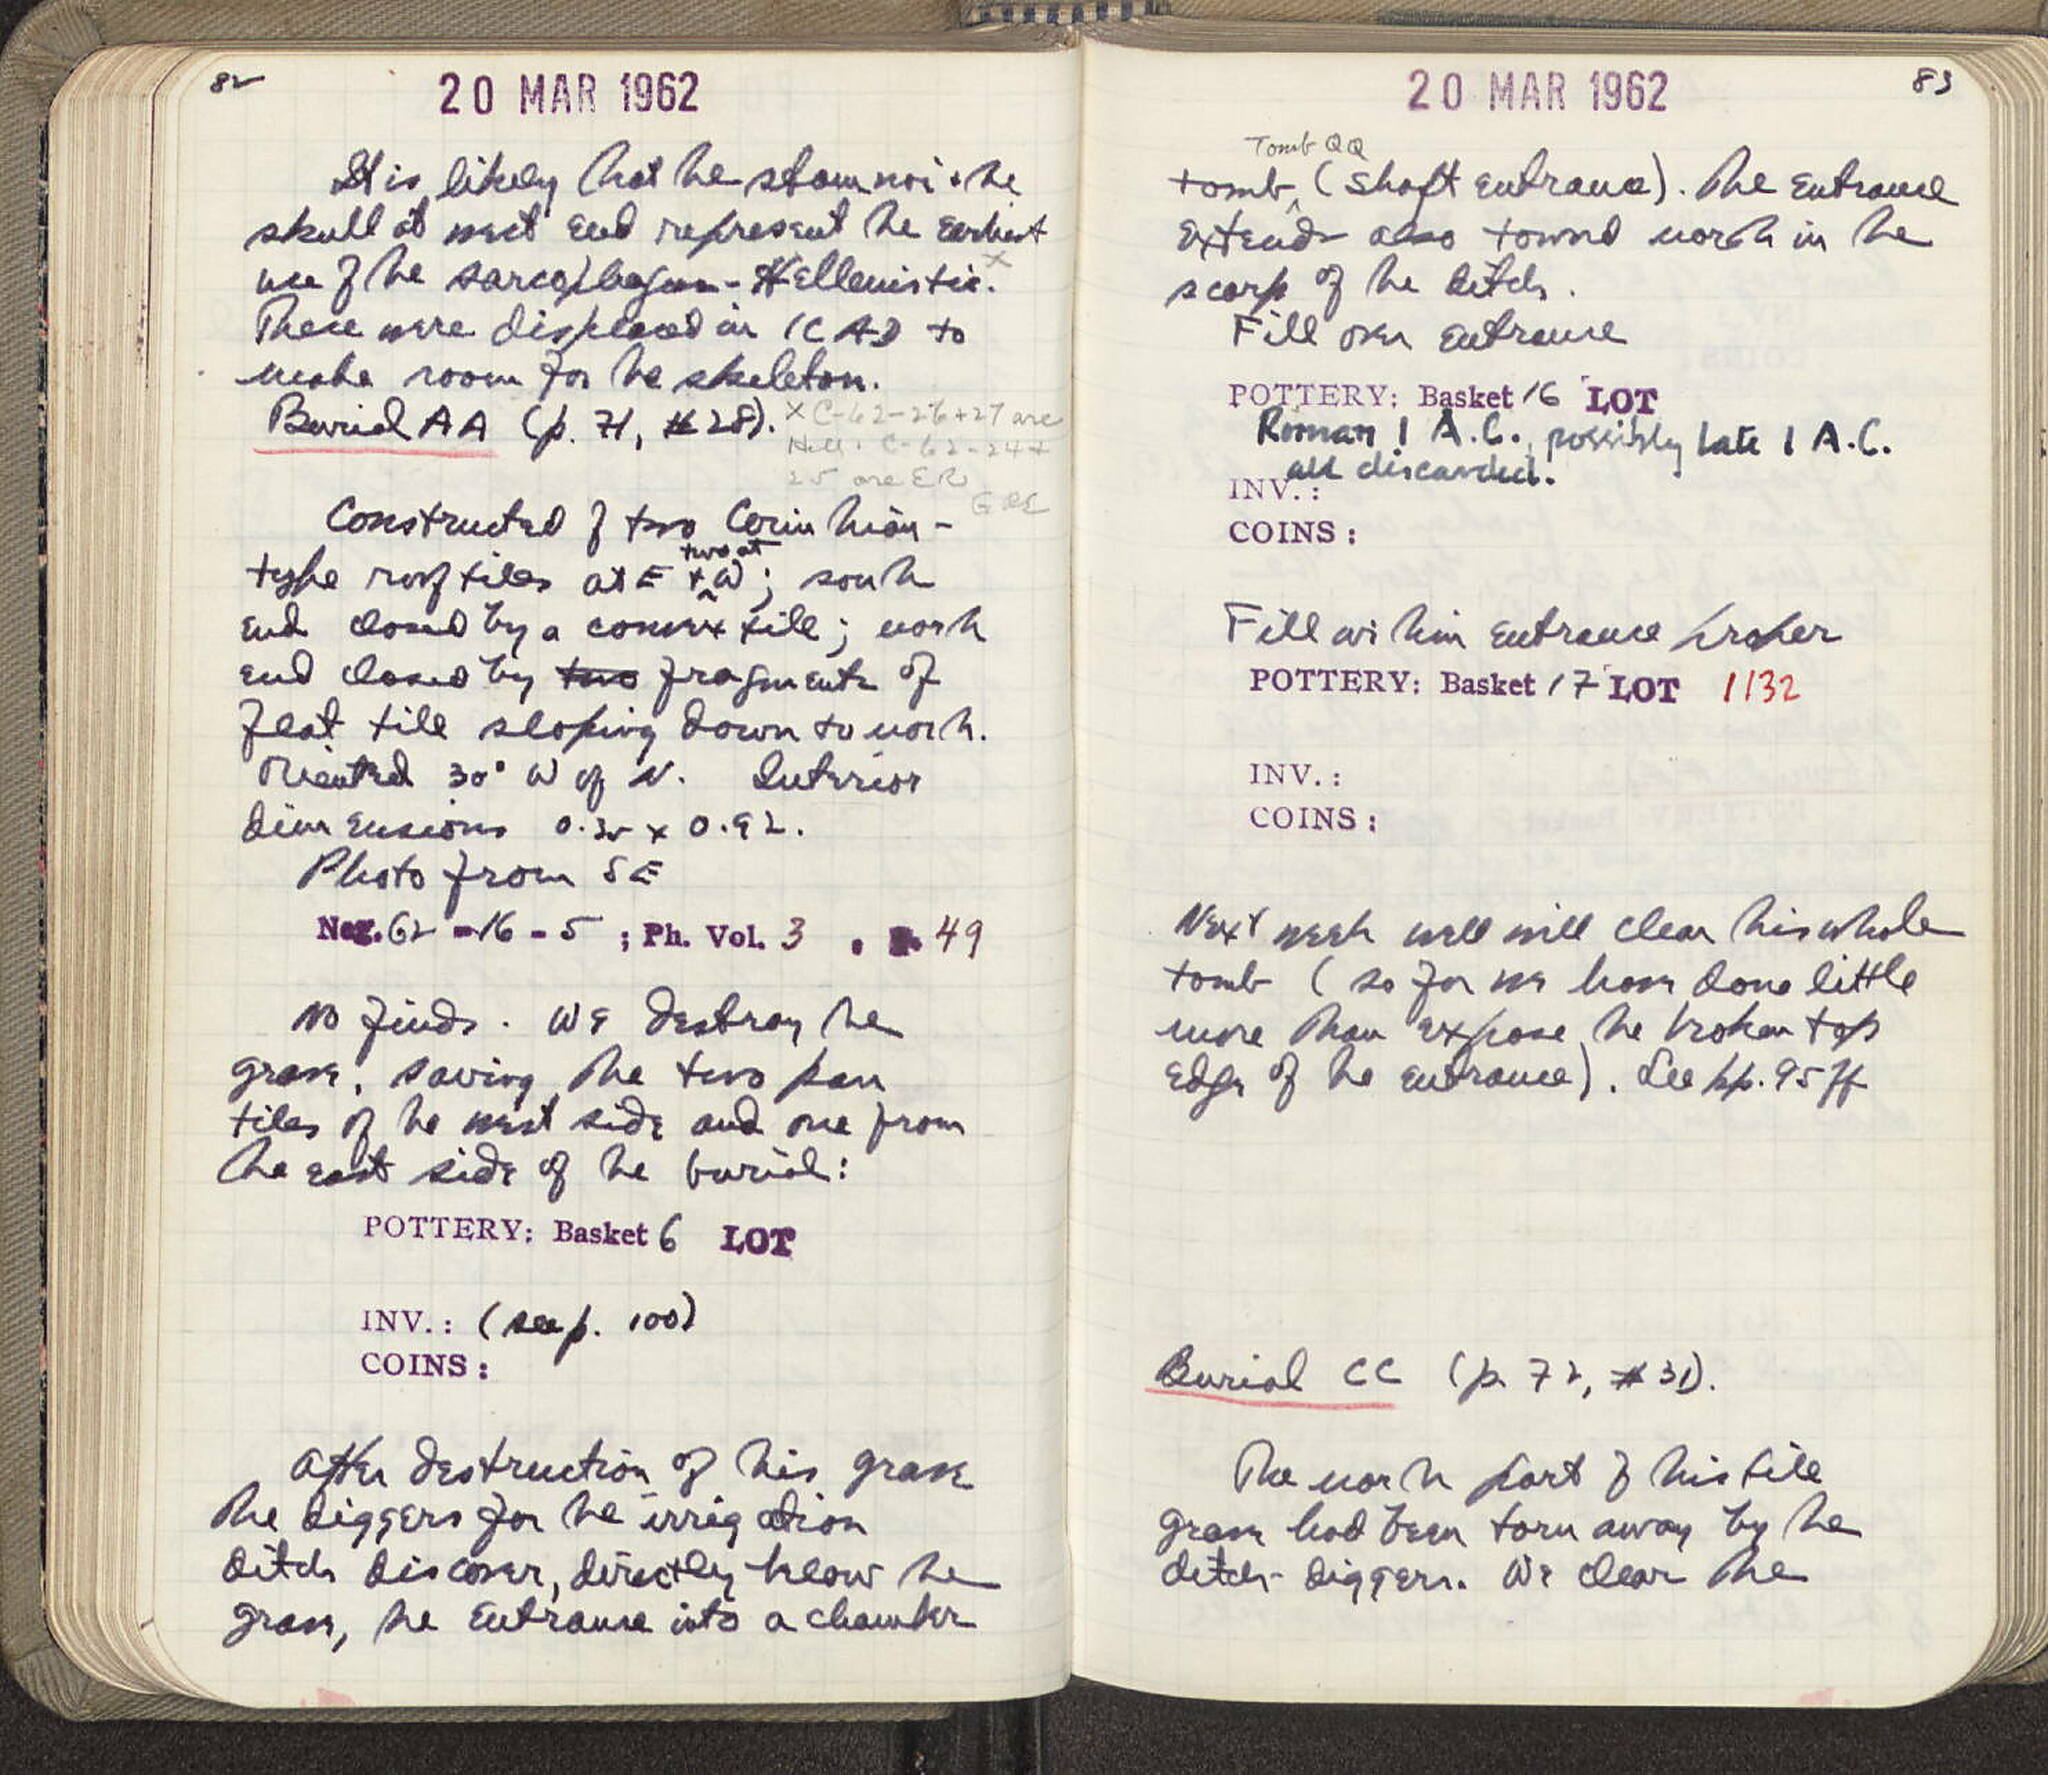 82
20 MAR 1962
It is likely that the stamnoi + the
skull at west end represent the earliest
use of the sarcophagus - Hellenistic. x
These were displaced in IC AD to
make room for the skeleton.
Burial AA (p. 71, #28).
x C-62-26+27 are
Hell. C-62-24+
25 are ER
GRE
Constructed of two Corinthian-
type roof tiles at E + two at W; south
end closed by a convex tile; north
end closed by two fragments of
flat tile sloping down to north.
Oriented 30° W of N. Interior
dimensions 0.35 x 0.92.
Photo from SE
Neg. 62-16-5; Ph. Vol. 3, p. 49
No finds. We destroy the
grave, saving the two pan
tiles of the west side and one from
the east side of the burial:
POTTERY: Basket 6 LOT
INV.: (see p. 100)
COINS:
After destruction of this grave
the diggers for the irrigation
ditch discover, directly below the
grave, the entrance into a chamber
83
20 MAR 1962
Tomb QQ
tomb (shaft entrance). The entrance
extends also toward north in the
scarp of the ditch.
Fill over entrance
POTTERY: Basket 16 LOT
Roman I A.C., possibly late I A.C.
all discarded.
INV.:
COINS:
Fill within entrance proper
POTTERY: Basket 17 LOT 1132
INV.:
COINS:
Next week well will clear this whole
tomb (so far we have done little
more than expose the broken top
edge of the entrance). See pp. 95 ff
Burial CC (p. 72, #31).
The north part of this tile
grave had been torn away by the
ditch-diggers. We clear the